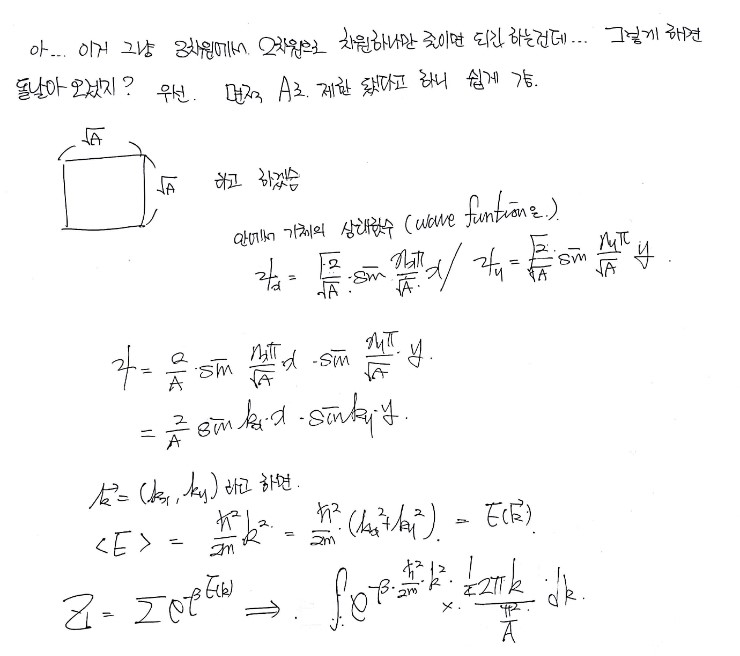 아... 이거 그냥 3차원에서 2차원으로 차원하나만 줄이면 되긴 하는건데... 그렇게 하면
돌날아 오겠지? 우선. 면적 A로 제한 됐다고 하니 쉽게 감.
√A
√A 라고 하겠음
안에서 기체의 상태함수 (wave funtion은.)
ψx = √(2/√A) · sin (nxπ/√A) x / ψy = √(2/√A) sin (nyπ/√A) y .
ψ = 2/A · sin (nxπ/√A) x · sin (nyπ/√A) · y.
= 2/A sin kx·x · sin ky·y.
k⃗ = (kx, ky) 라고 하면.
<E> = ħ²/2m k² = ħ²/2m · (kx²+ky²) = E(k⃗)
Z₁ = Σ e^-βE(k) ⇒ ∫ e^-β·ħ²/2m·k² · × (1/4 2πk)/(π²/A) · dk.